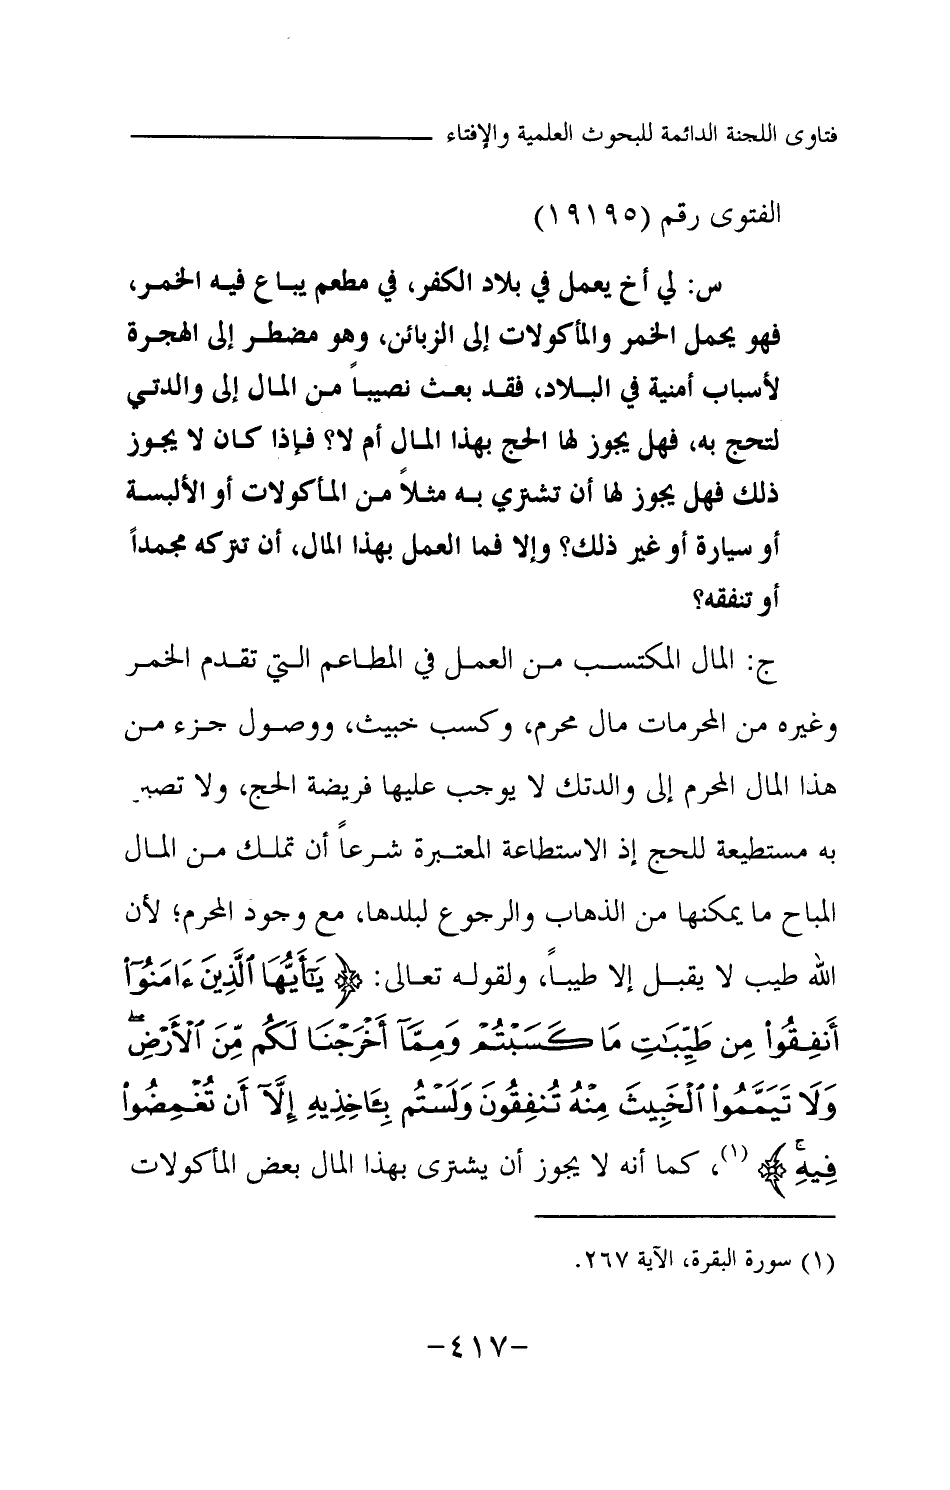 فتاوى اللجنة الدائمة للبحوث العلمية والإفتاء
الفتوى رقم (١٩١٩٥)
س: لي أخ يعمل في بلاد الكفر، في مطعم يباع فيه الخمر،
فهو يحمل الخمر والمأكولات إلى الزبائن، وهو مضطر إلى الهجرة
لأسباب أمنية في البلاد، فقد بعث نصيباً من المال إلى والدتي
لتحج به، فهل يجوز لها الحج بهذا المال أم لا؟ فإذا كان لا يجوز
ذلك فهل يجوز لها أن تشتري به مثلاً من المأكولات أو الألبسة
أو سيارة أو غير ذلك؟ وإلا فما العمل بهذا المال، أن تتركه مجمداً
أو تنفقه؟
ج: المال المكتسب من العمل في المطاعم التي تقدم الخمر
وغيره من المحرمات مال محرم، وكسب خبيث، ووصول جزء من
هذا المال المحرم إلى والدتك لا يوجب عليها فريضة الحج، ولا تصير
به مستطيعة للحج إذ الاستطاعة المعتبرة شرعاً أن تملك من المال
المباح ما يمكنها من الذهاب والرجوع لبلدها، مع وجود المحرم؛ لأن
الله طيب لا يقبل إلا طيباً، ولقوله تعالى: ﴿ يَٰٓأَيُّهَا ٱلَّذِينَ ءَامَنُوٓا۟
أَنفِقُوا۟ مِن طَيِّبَٰتِ مَا كَسَبْتُمْ وَمِمَّآ أَخْرَجْنَا لَكُم مِّنَ ٱلْأَرْضِ ۖ
وَلَا تَيَمَّمُوا۟ ٱلْخَبِيثَ مِنْهُ تُنفِقُونَ وَلَسْتُم بِـَٔاخِذِيهِ إِلَّآ أَن تُغْمِضُوا۟
فِيهِ ۚ ﴾ (١)، كما أنه لا يجوز أن يشترى بهذا المال بعض المأكولات
(١) سورة البقرة، الآية ٢٦٧.
-٤١٧-